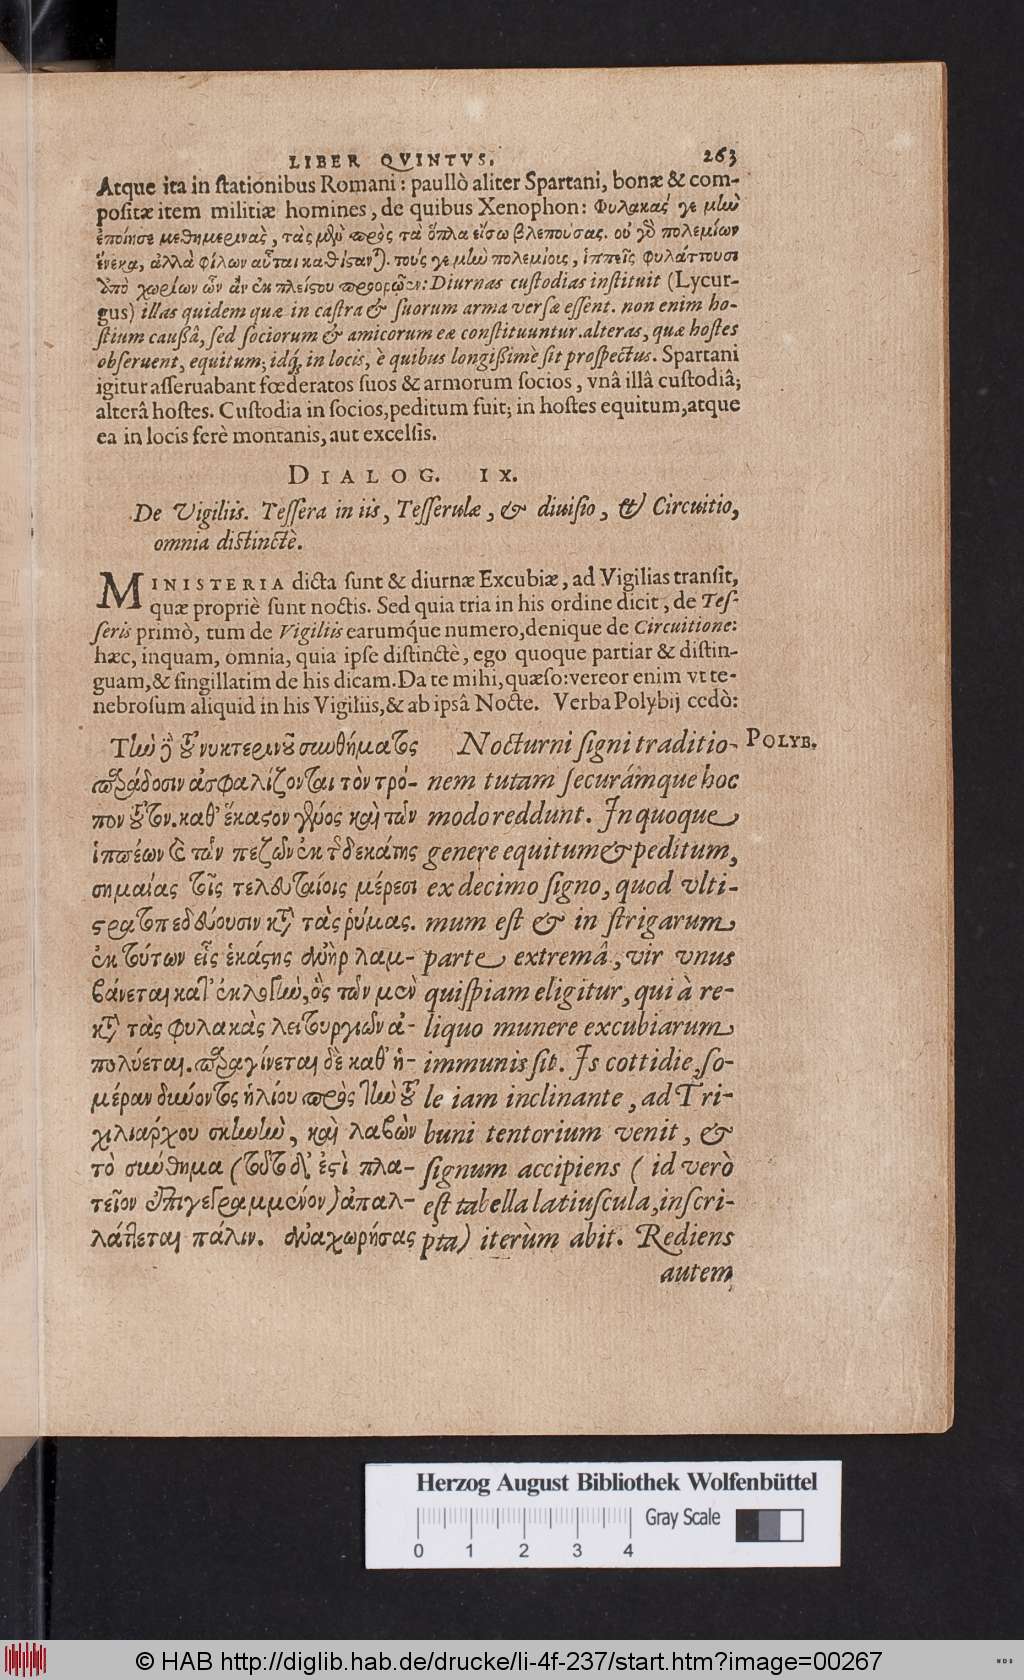 LIBER QVINTVS. 263
Atque ita in stationibus Romani: paullò aliter Spartani, bonæ & com-
positæ item militiæ homines, de quibus Xenophon: Φυλακας γε μὴν
ἐποίησε μεθημερινὰς, τὰς μὲν πρὸς τὰ ὅπλα εἴσω βλεπούσας. οὐ γὸ πολεμίων
ἕνεκα, ἀλλὰ φίλων αὗται καθίστανται. τοὺς γε μὴν πολεμίοις, ἱππεῖς φυλάττουσι
ὑπὸ χωρίων ὧν ἂν ἐκ πλείστου προορῷεν: Diurnas custodias instituit (Lycur-
gus) illas quidem quæ in castra & suorum arma versæ essent. non enim ho-
stium caußâ, sed sociorum & amicorum eæ constituuntur. alteras, quæ hostes
obseruent, equitum; idq́; in locis, è quibus longißimè sit prospectus. Spartani
igitur asseruabant fœderatos suos & armorum socios, vnâ illâ custodiâ;
alterâ hostes. Custodia in socios, peditum fuit; in hostes equitum, atque
ea in locis ferè montanis, aut excelsis.
DIALOG. IX.
De Vigiliis. Tessera in iis, Tesserulæ, & diuisio, & Circuitio,
omnia distinctè.
MINISTERIA dicta sunt & diurnæ Excubiæ, ad Vigilias transit,
quæ propriè sunt noctis. Sed quia tria in his ordine dicit, de Tes-
seris primò, tum de Vigiliis earumq́ue numero, denique de Circuitione:
hæc, inquam, omnia, quia ipse distinctè, ego quoque partiar & distin-
guam, & singillatim de his dicam. Da te mihi, quæso: vereor enim vt te-
nebrosum aliquid in his Vigiliis, & ab ipsâ Nocte. Verba Polybij cedò:
Τὴν δὲ τοῦ νυκτερινοῦ συνθήματος
παράδοσιν ἀσφαλίζονται τὸν τρό-
πον τοῦτον. καθ' ἕκαστον γένος καὶ τῶν
ἱππέων καὶ τῶν πεζῶν ἐκ τῆς δεκάτης
σημαίας τοῖς τελευταίοις μέρεσι
στρατοπεδεύουσιν κατὰ τὰς ῥύμας.
ἐκ τούτων εἷς ἑκάστης ἀνὴρ λαμ-
βάνεται κατ' ἐκλογὴν, ὃς τῶν μὲν
κατὰ τὰς φυλακὰς λειτουργιῶν ἀ-
πολύεται. παραγίνεται δὲ καθ' ἡ-
μέραν δύνοντος ἡλίου πρὸς τὴν τοῦ
χιλιάρχου σκηνὴν, καὶ λαβὼν
τὸ σύνθημα (τοῦτο δ' ἐστὶ πλα-
τεῖον ἐπιγεγραμμένον) ἀπαλ-
λάττεται πάλιν. ἀναχωρήσας
Nocturni signi traditio-
nem tutam securámque hoc
modo reddunt. In quoque
genere equitum & peditum,
ex decimo signo, quod vlti-
mum est & in strigarum
parte extremâ, vir vnus
quispiam eligitur, qui à re-
liquo munere excubiarum
immunis sit. Is cottidie, so-
le iam inclinante, ad Tri-
buni tentorium venit, &
signum accipiens (id verò
est tabella latiuscula, inscri-
pta) iterùm abit. Rediens
autem
POLYB.
Herzog August Bibliothek Wolfenbüttel
Gray Scale
0 1 2 3 4
© HAB http://diglib.hab.de/drucke/li-4f-237/start.htm?image=00267